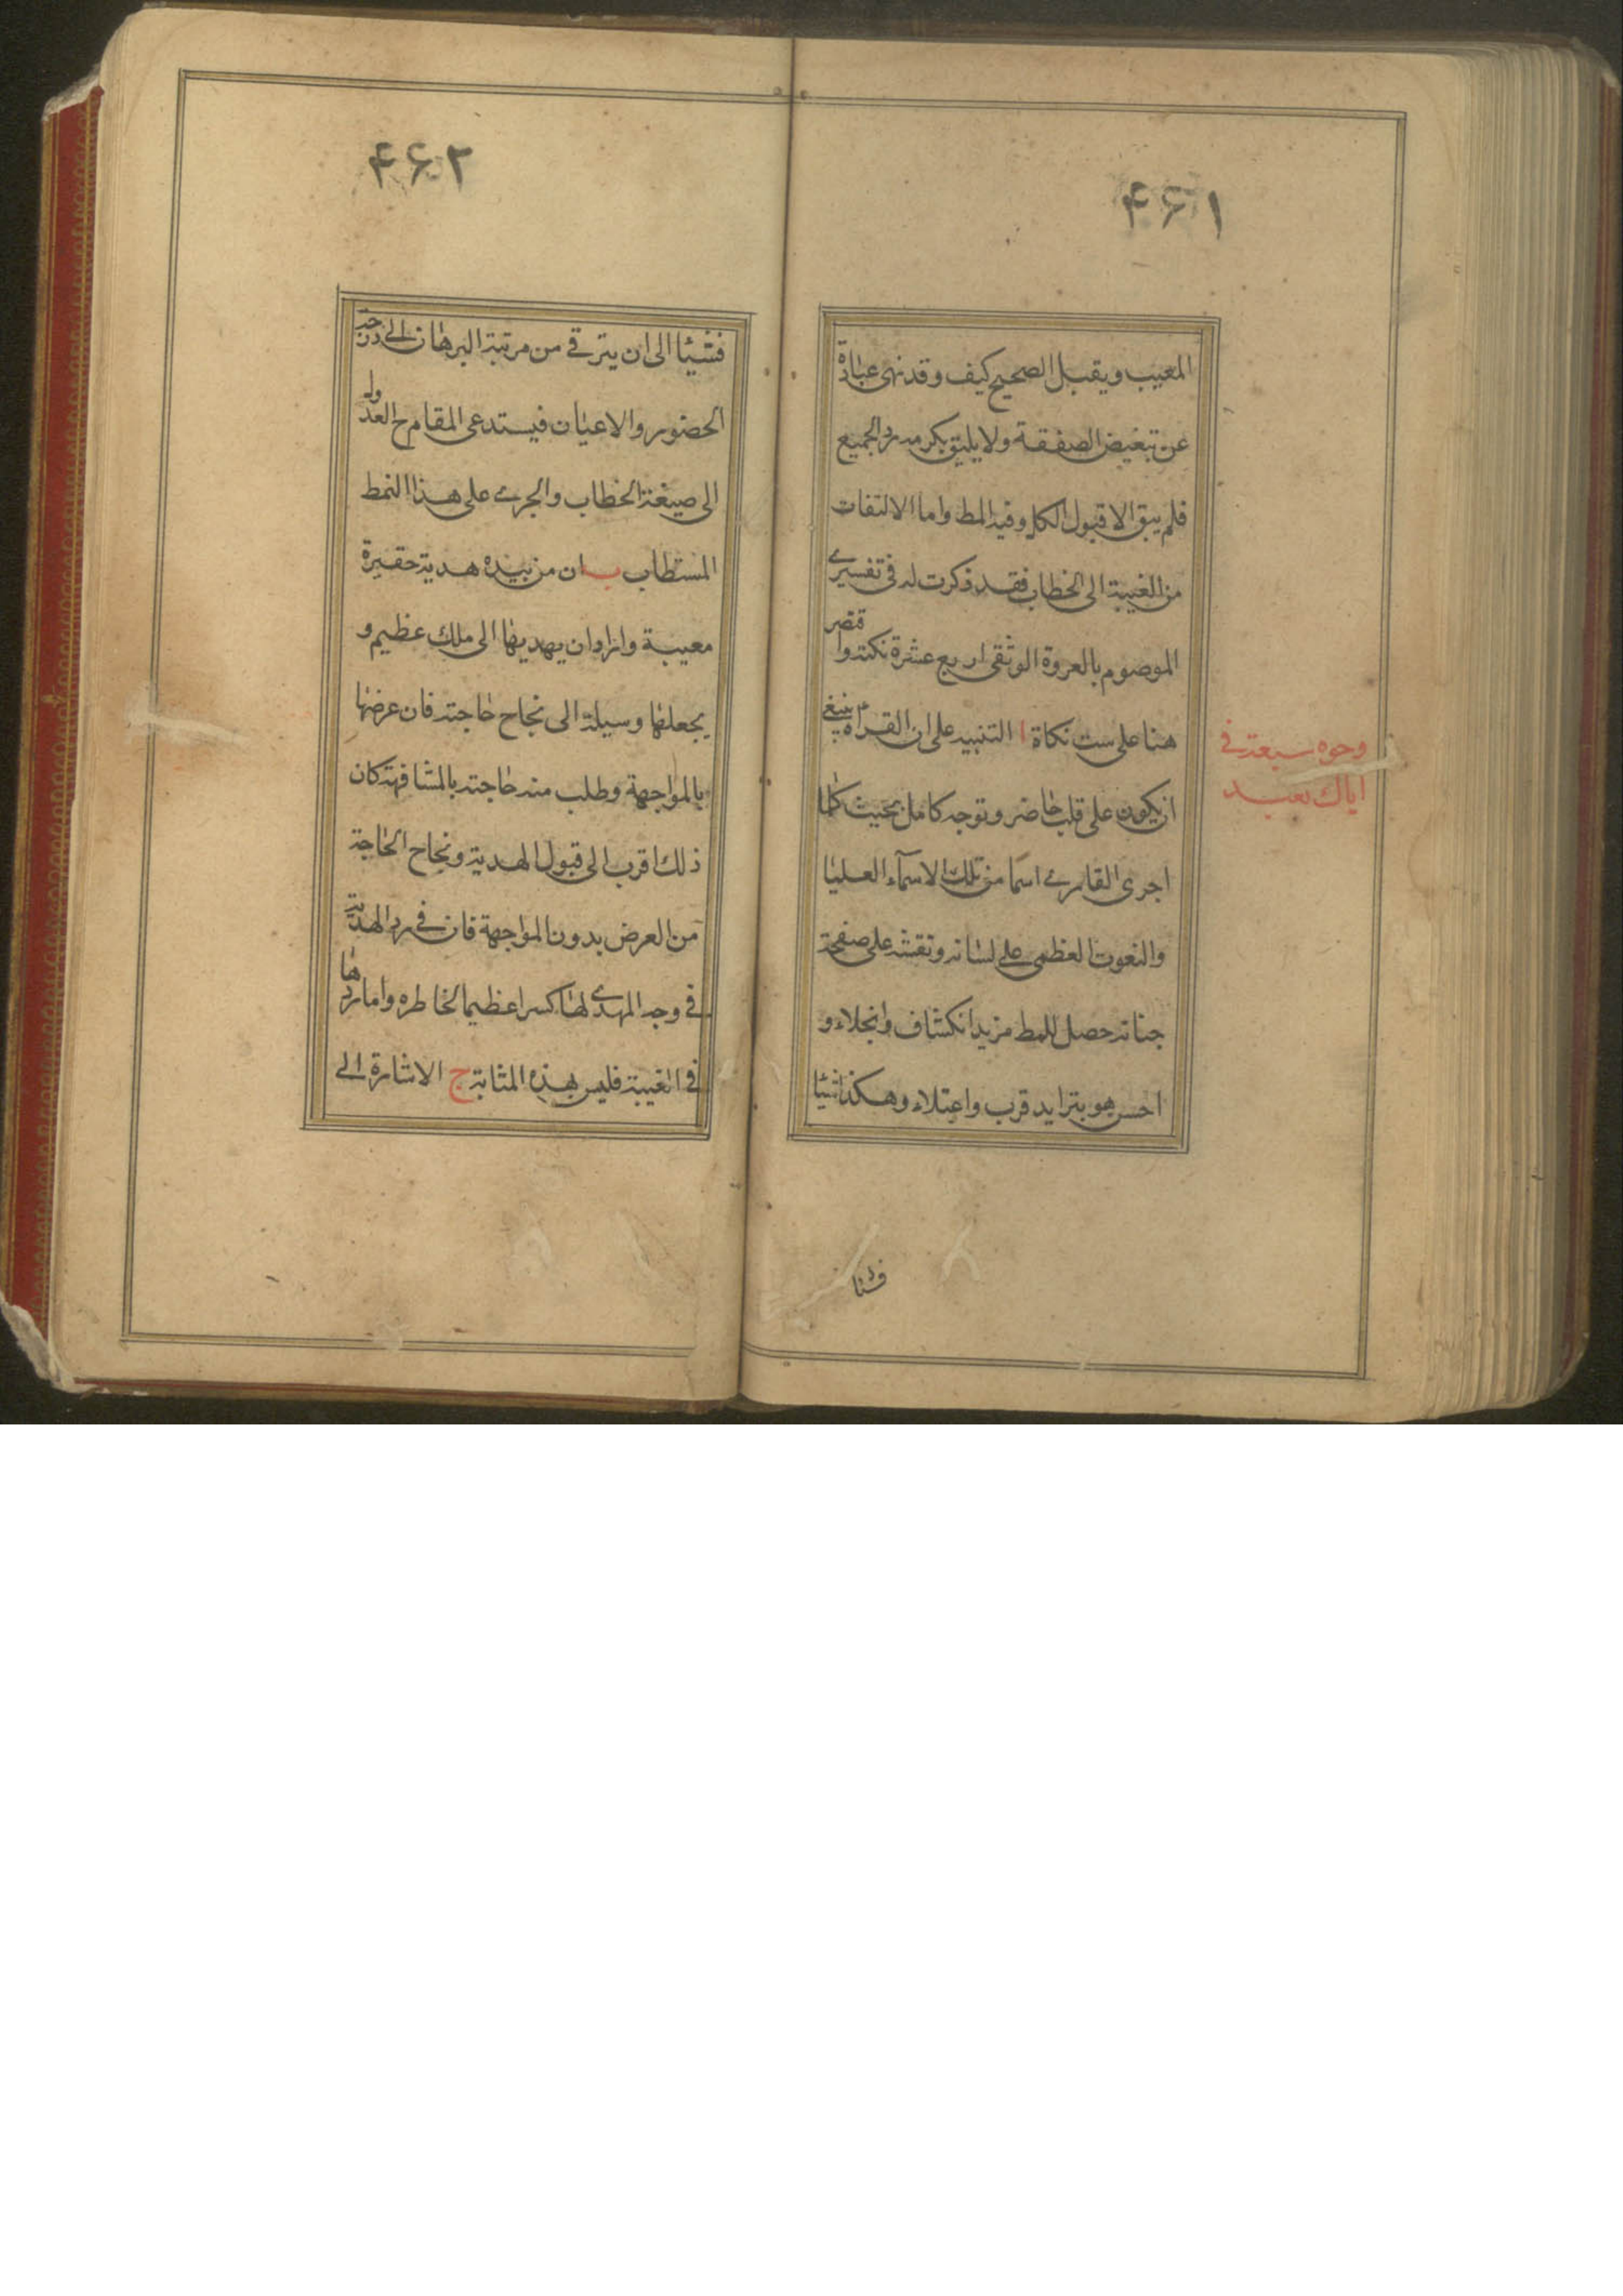 ۴۶۱
المعيب ويقبل الصحيح كيف وقد نهى عباده
عن تبعيض الصفقة ولا يليق بكرمه رد الجميع
فلم يبق الا قبول الكل وفيه المط واما الالتفات
من الغيبة الى الخطاب فقد ذكرت له فى تفسيرى
الموصوم بالعروة الوثقى اربع عشرة نكتة واقتصر
هنا على ست نكاة ا التنبيه على ان القراءة ينبغى
ان يكون على قلب حاضر وتوجه كامل بحيث كلما
اجرى القارى اسما من تلك الاسمآء العليا
والنعوت العظمى على لسانه ونقشه على صفحة
جنانه حصل للمط مزيد انكشاف وانجلاء و
احس هو بتزايد قرب واعتلاء وهكذا شيئا
فشيئا
وجوه سبعة فى
اياك نعبد
۴۶۲
فشيئا الى ان يترقى من مرتبة البرهان الى درجة
الحضور والاعيان فيستدعى المقام ح العدول
الى صيغة الخطاب والجرى على هذا النمط
المستطاب ب ان من بيده هدية حقيرة
معيبة واراد ان يهديها الى ملك عظيم و
يجعلها وسيلة الى نجاح حاجته فان عرضها
بالمواجهة وطلب منه حاجته بالمشافهة كان
ذلك اقرب الى قبول الهدية ونجاح الحاجة
من العرض بدون المواجهة فان فى رد الهدية
فى وجه المهدى لها كسرا عظيما لخاطره واما ردها
فى الغيبة فليس بهذه المثابة ج الاشارة الى